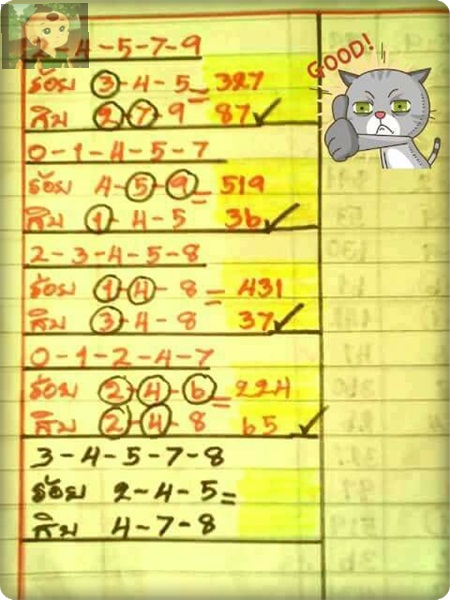 -4-5-7-9
ร้อย 3-4-5 = 327
สิบ 2-7-9 87 ✓
GOOD!
0-1-4-5-7
ร้อย 4-5-9 = 519
สิบ 1-4-5 36 ✓
2-3-4-5-8
ร้อย 1-4-8 = 431
สิบ 3-4-8 37 ✓
0-1-2-4-7
ร้อย 2-4-6 = 224
สิบ 2-4-8 65 ✓
3-4-5-7-8
ร้อย 2-4-5 =
สิบ 4-7-8